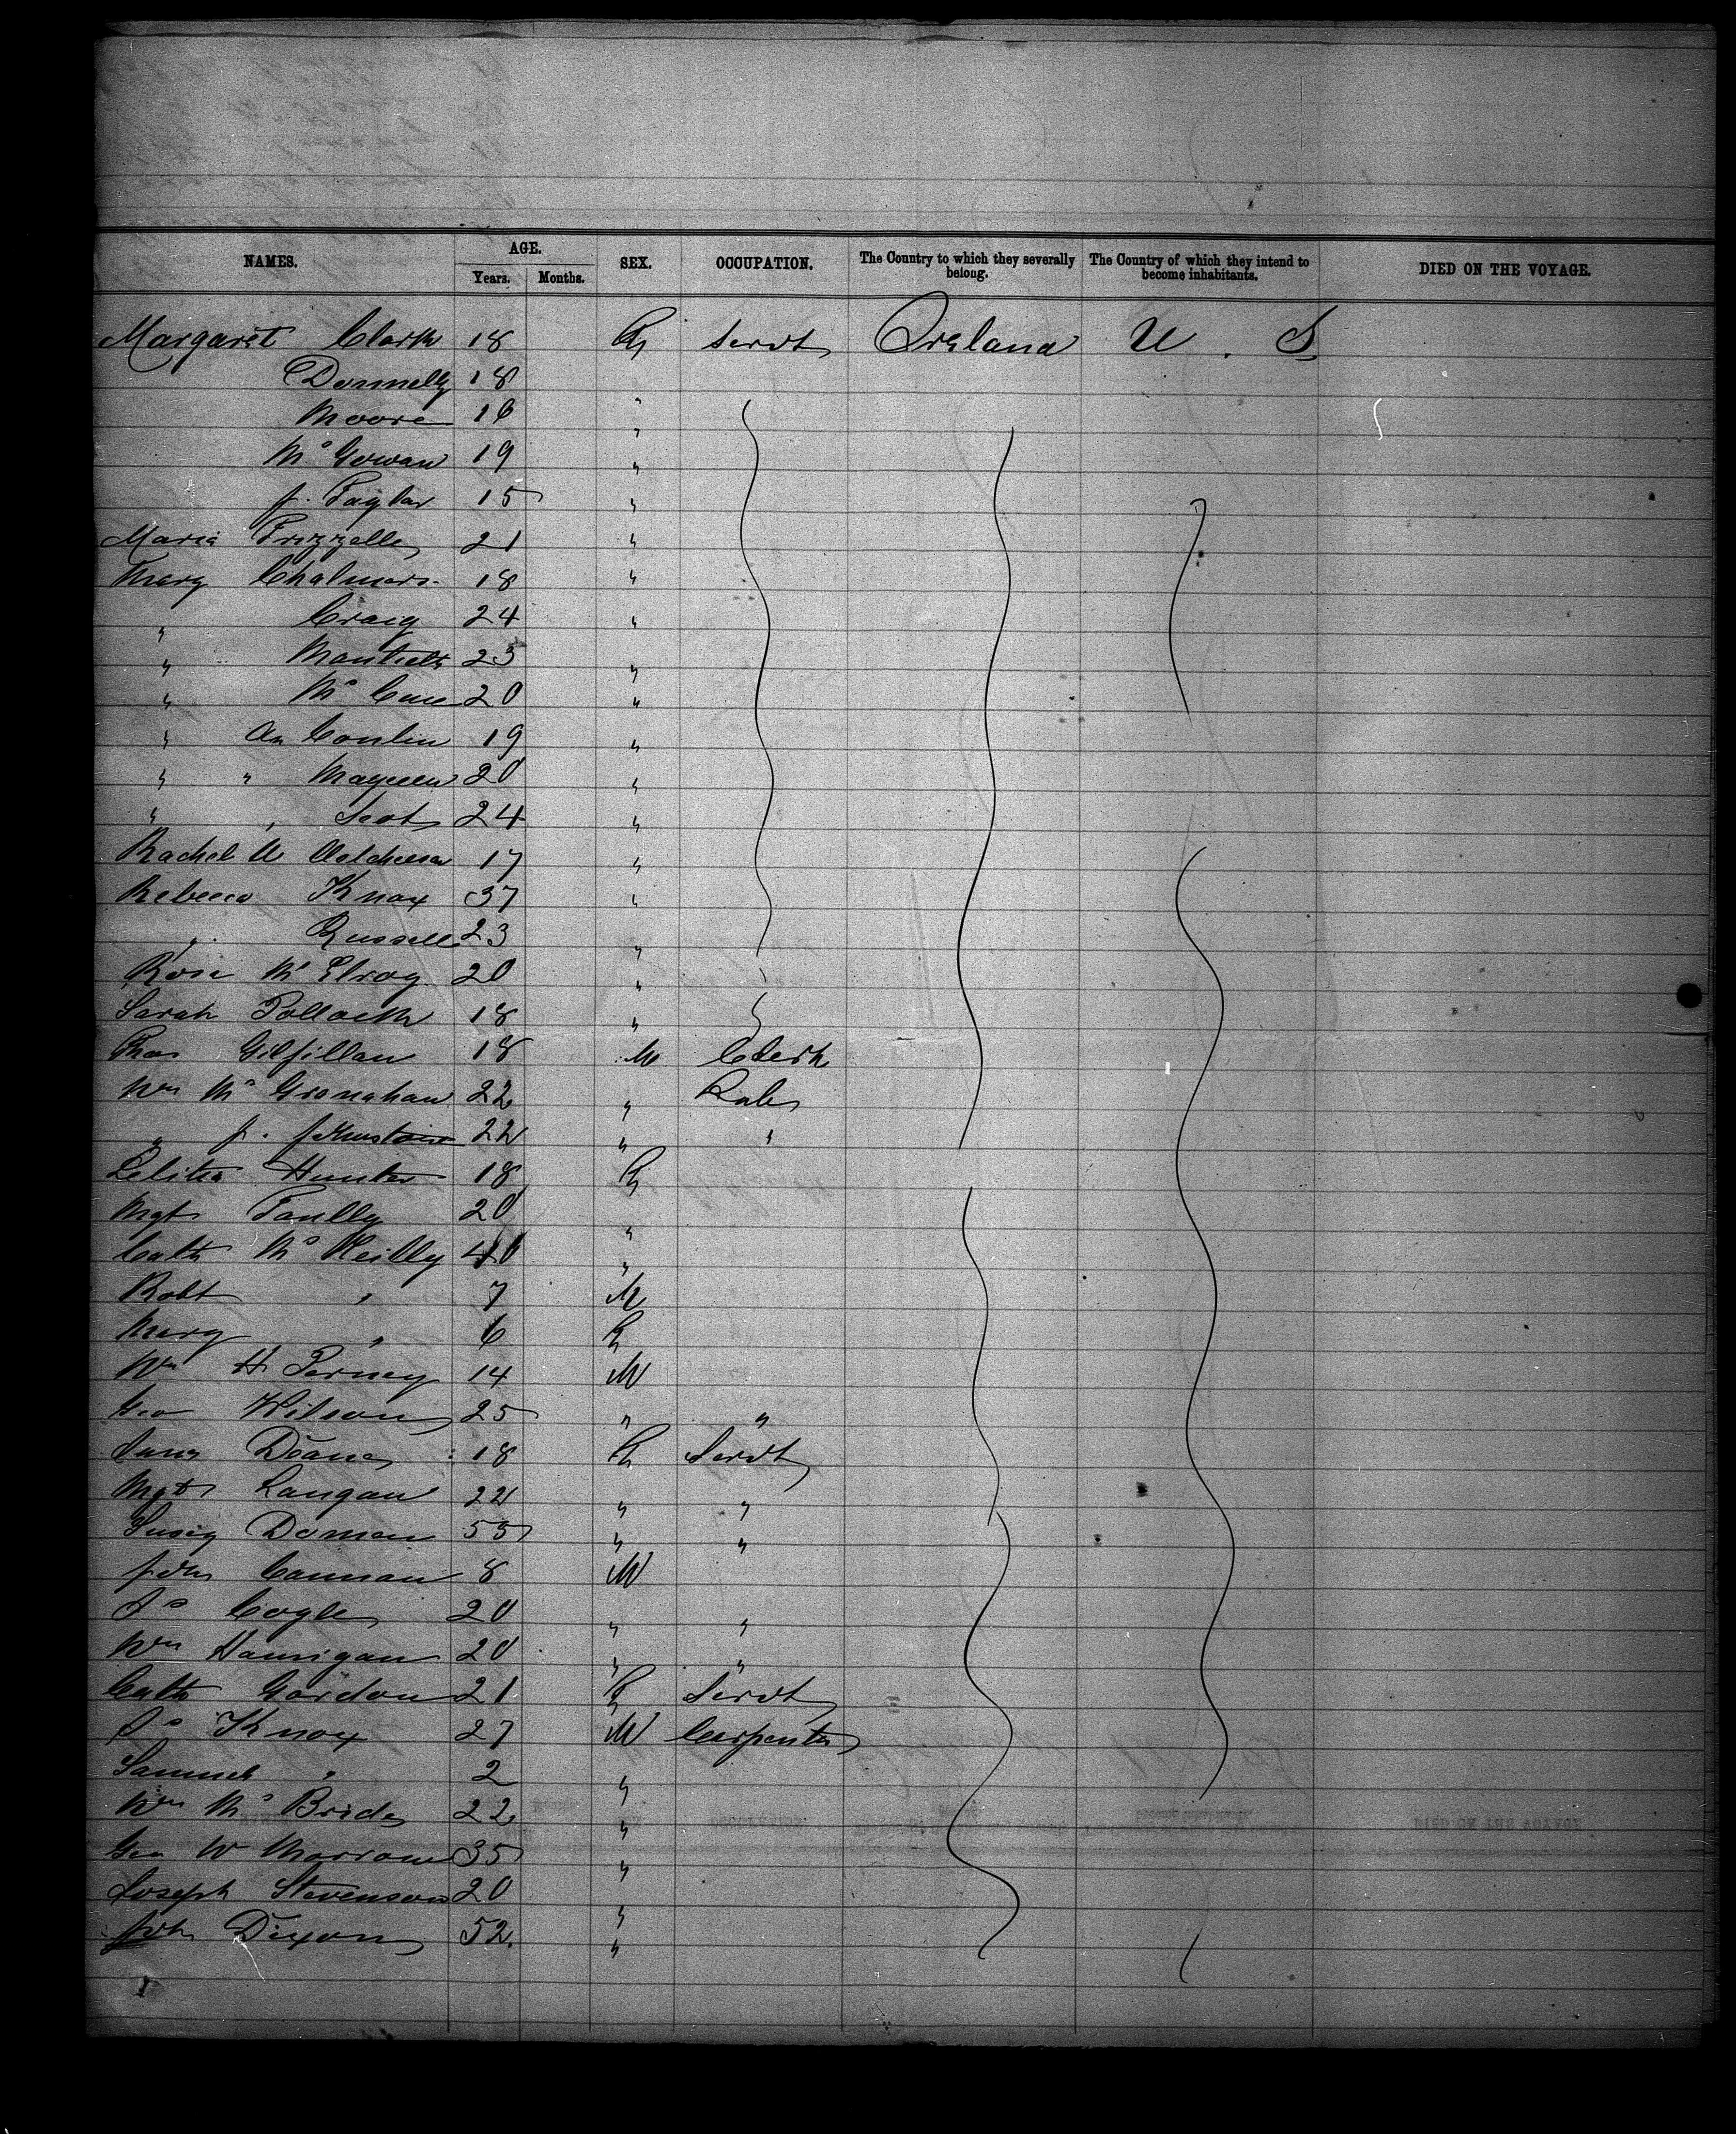 NAMES. AGE. SEX. OCCUPATION. The Country to which they severally belong. The Country of which they intend to become inhabitants. DIED ON THE VOYAGE.
Years. Months.
Margaret Clark 18 F Servt Ireland U. S
Donnelly 18 "
Moore 16 "
Mc Gowan 19 "
J. Taylor 15 "
Maria Frizzelle 21 "
Mary Chalmers 18 "
" Craig 24 "
" Monteith 23 "
" Mc Cune 20 "
" An Conlin 19 "
" " 20 "
" " Scot 24 "
Rachel A 17 "
Rebecca Knox 37 "
" Russell 23 "
Rose Mc Elroy 20 "
Sarah Pollock 18 "
Thos Gilfillan 18 M Clerk
Wm Mc Granahan 22 " Lab
" J. Johnstone 22 " "
Letitia Hunter 18 F
Mgt 20 "
Cath Mc Neilly 40 "
Robt " 7 M
Mary " 6 F
Wm H 14 M
Geo Wilson 25 " "
Deane 18 F Servt
Mgt Langan 22 " "
Doman 55 " "
Jno Cannon 8 M
Js Cogle 20 " "
Wm Hannigan 20 " "
Cath Gordon 21 F Servt
Js Knox 27 M Carpenter
Samuel " 2 "
Wm Mc Bride 22 "
Geo W Morrow 35 "
Joseph Stevenson 20 "
Jno Dixon 52. "